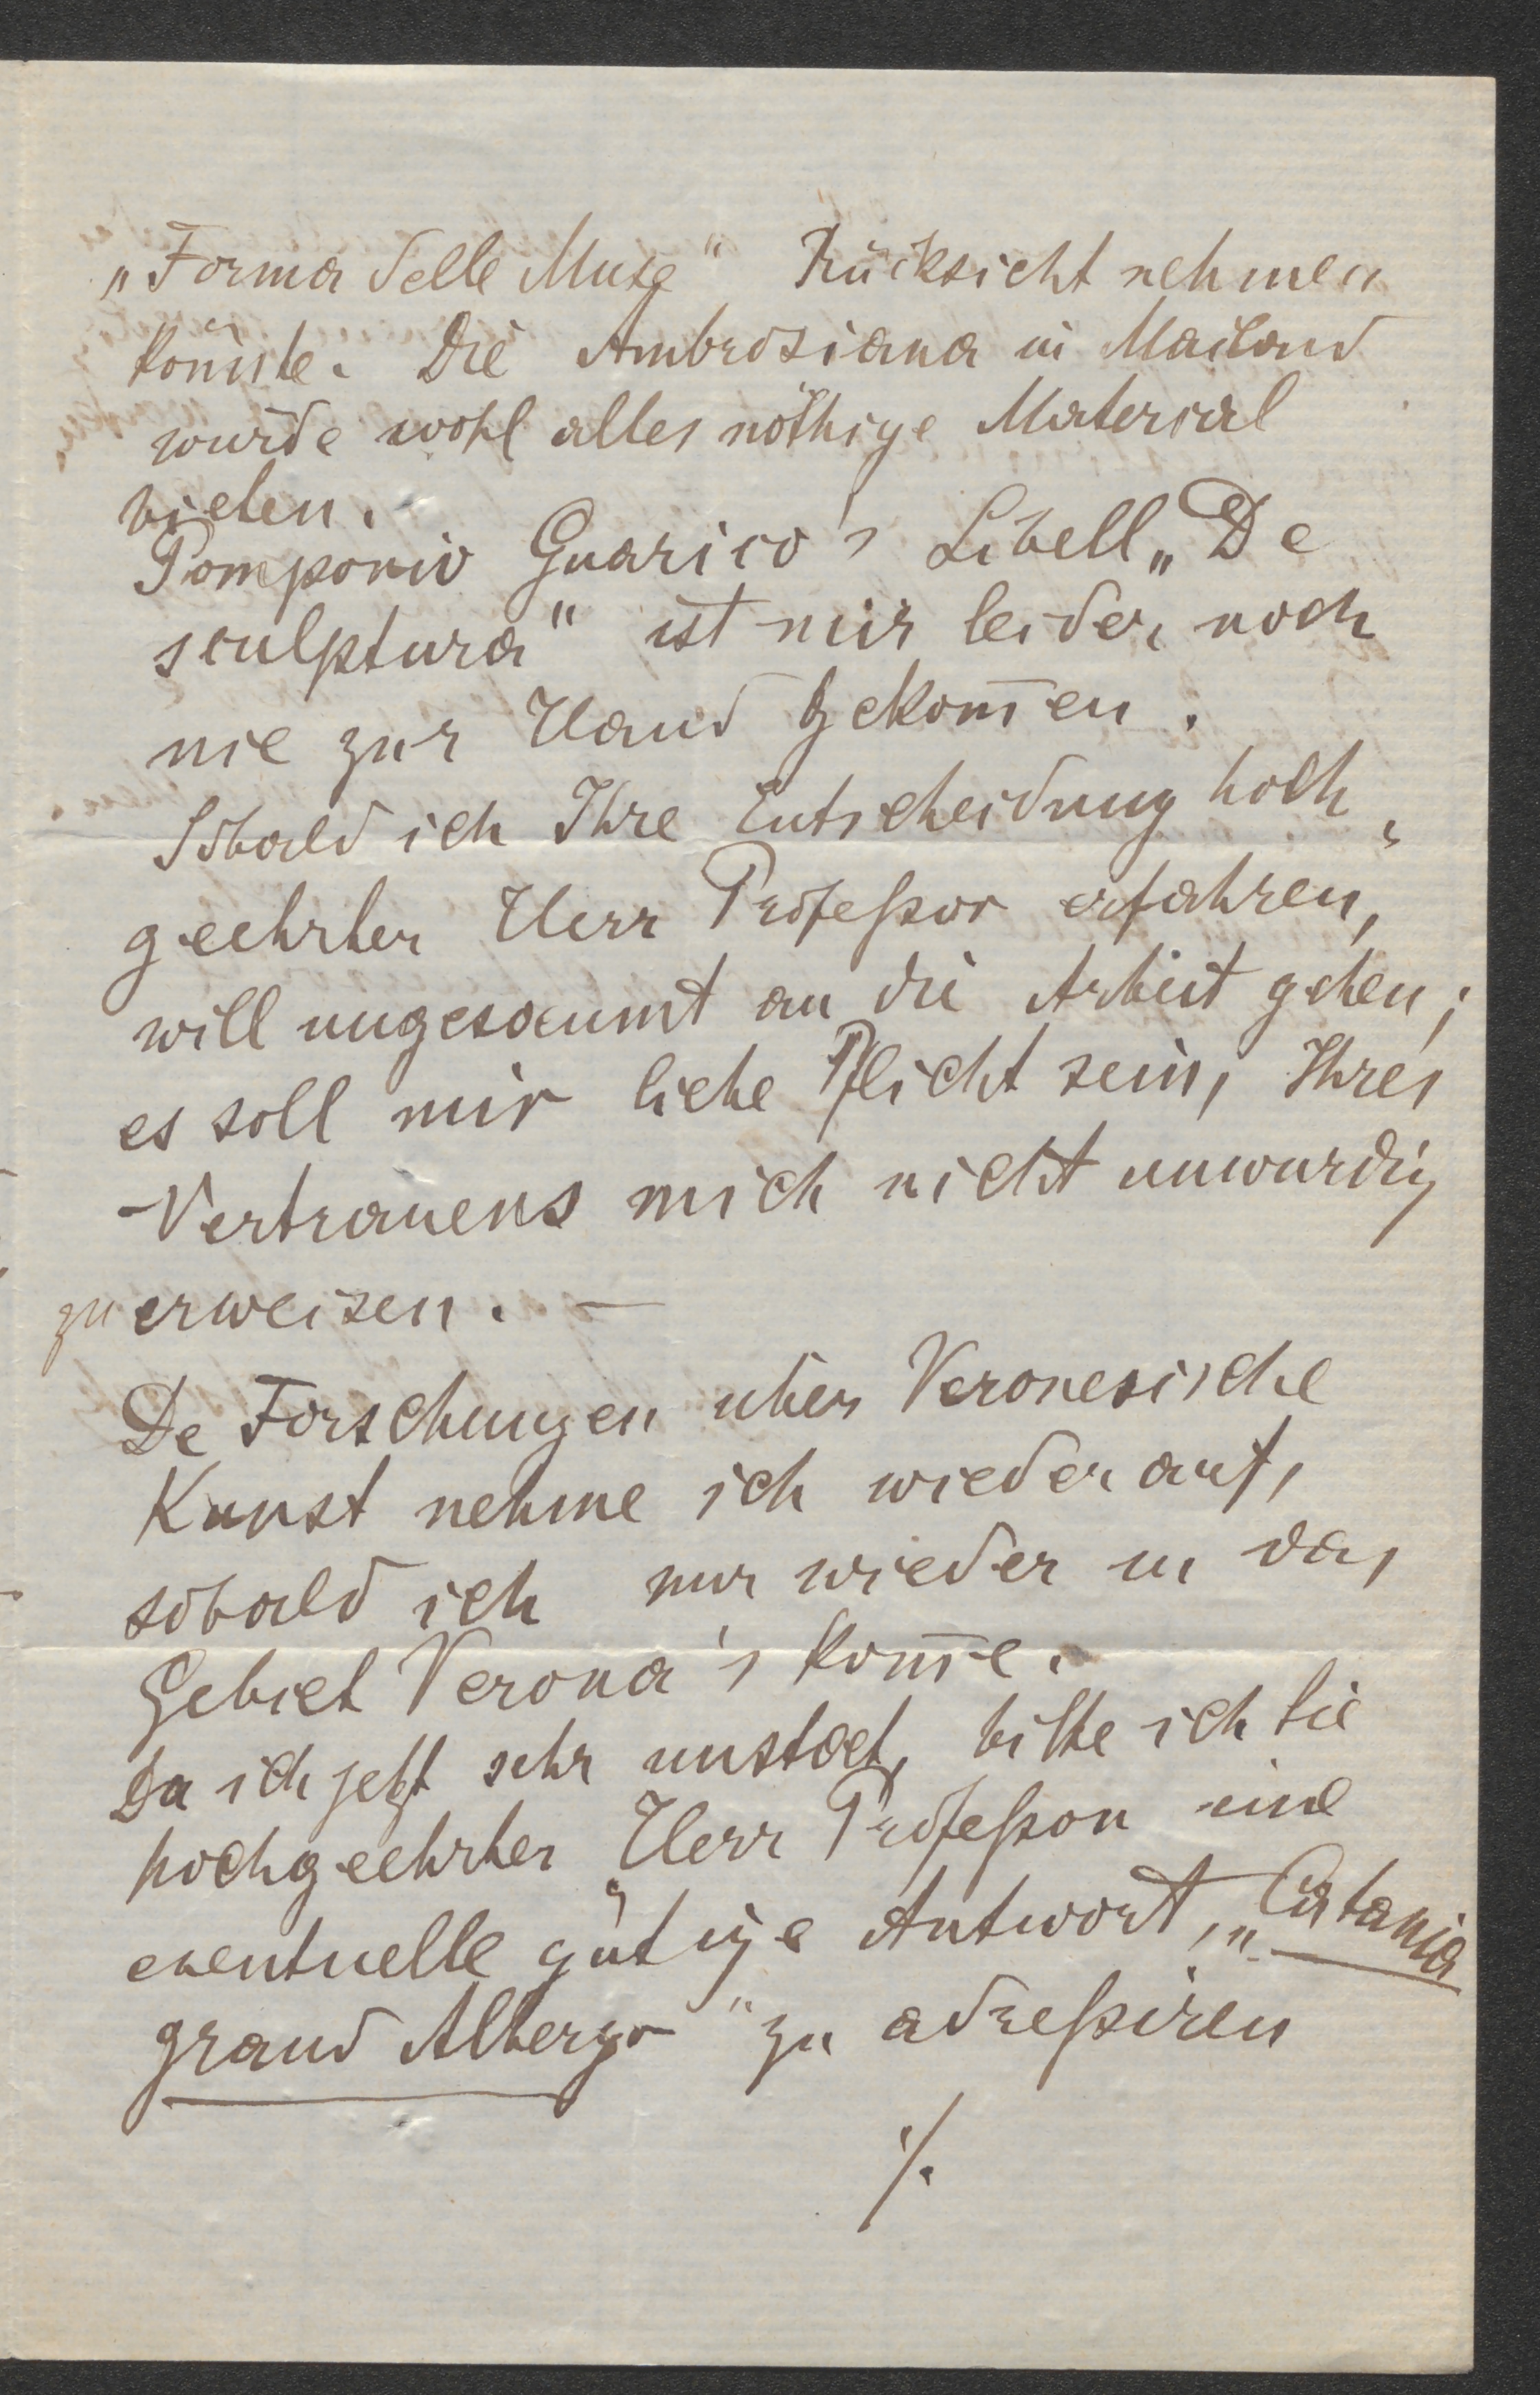 „Forma delle Muse“ Rücksicht nehmen
könnte. Die Ambrosiana in Mailand
würde wohl alles nöthige Material
bieten.
Pomponio Guarico's Libell „De
sculptura“ ist mir leider noch
nie zur Hand gekom̄en.
Sobald ich Ihre Entscheidung hoch-
geehrter Herr Profeßor erfahren,
will ungesaeumt an die Arbeit gehen;
es soll mir liebe Pflicht sein, Ihres
Vertrauens mich nicht unwürdig
zu erweisen. —
Die Forschungen über Veronesische
Kunst nehme ich wieder auf,
sobald ich nur wieder in das
Gebiet Verona's kom̄e.
Da ich jetzt sehr unstaet, bitte ich Sie
hochgeehrter Herr Profeßor eine
eventuelle gütige Antwort, „Catania
grand Albergo“ zu adreßiren
./.